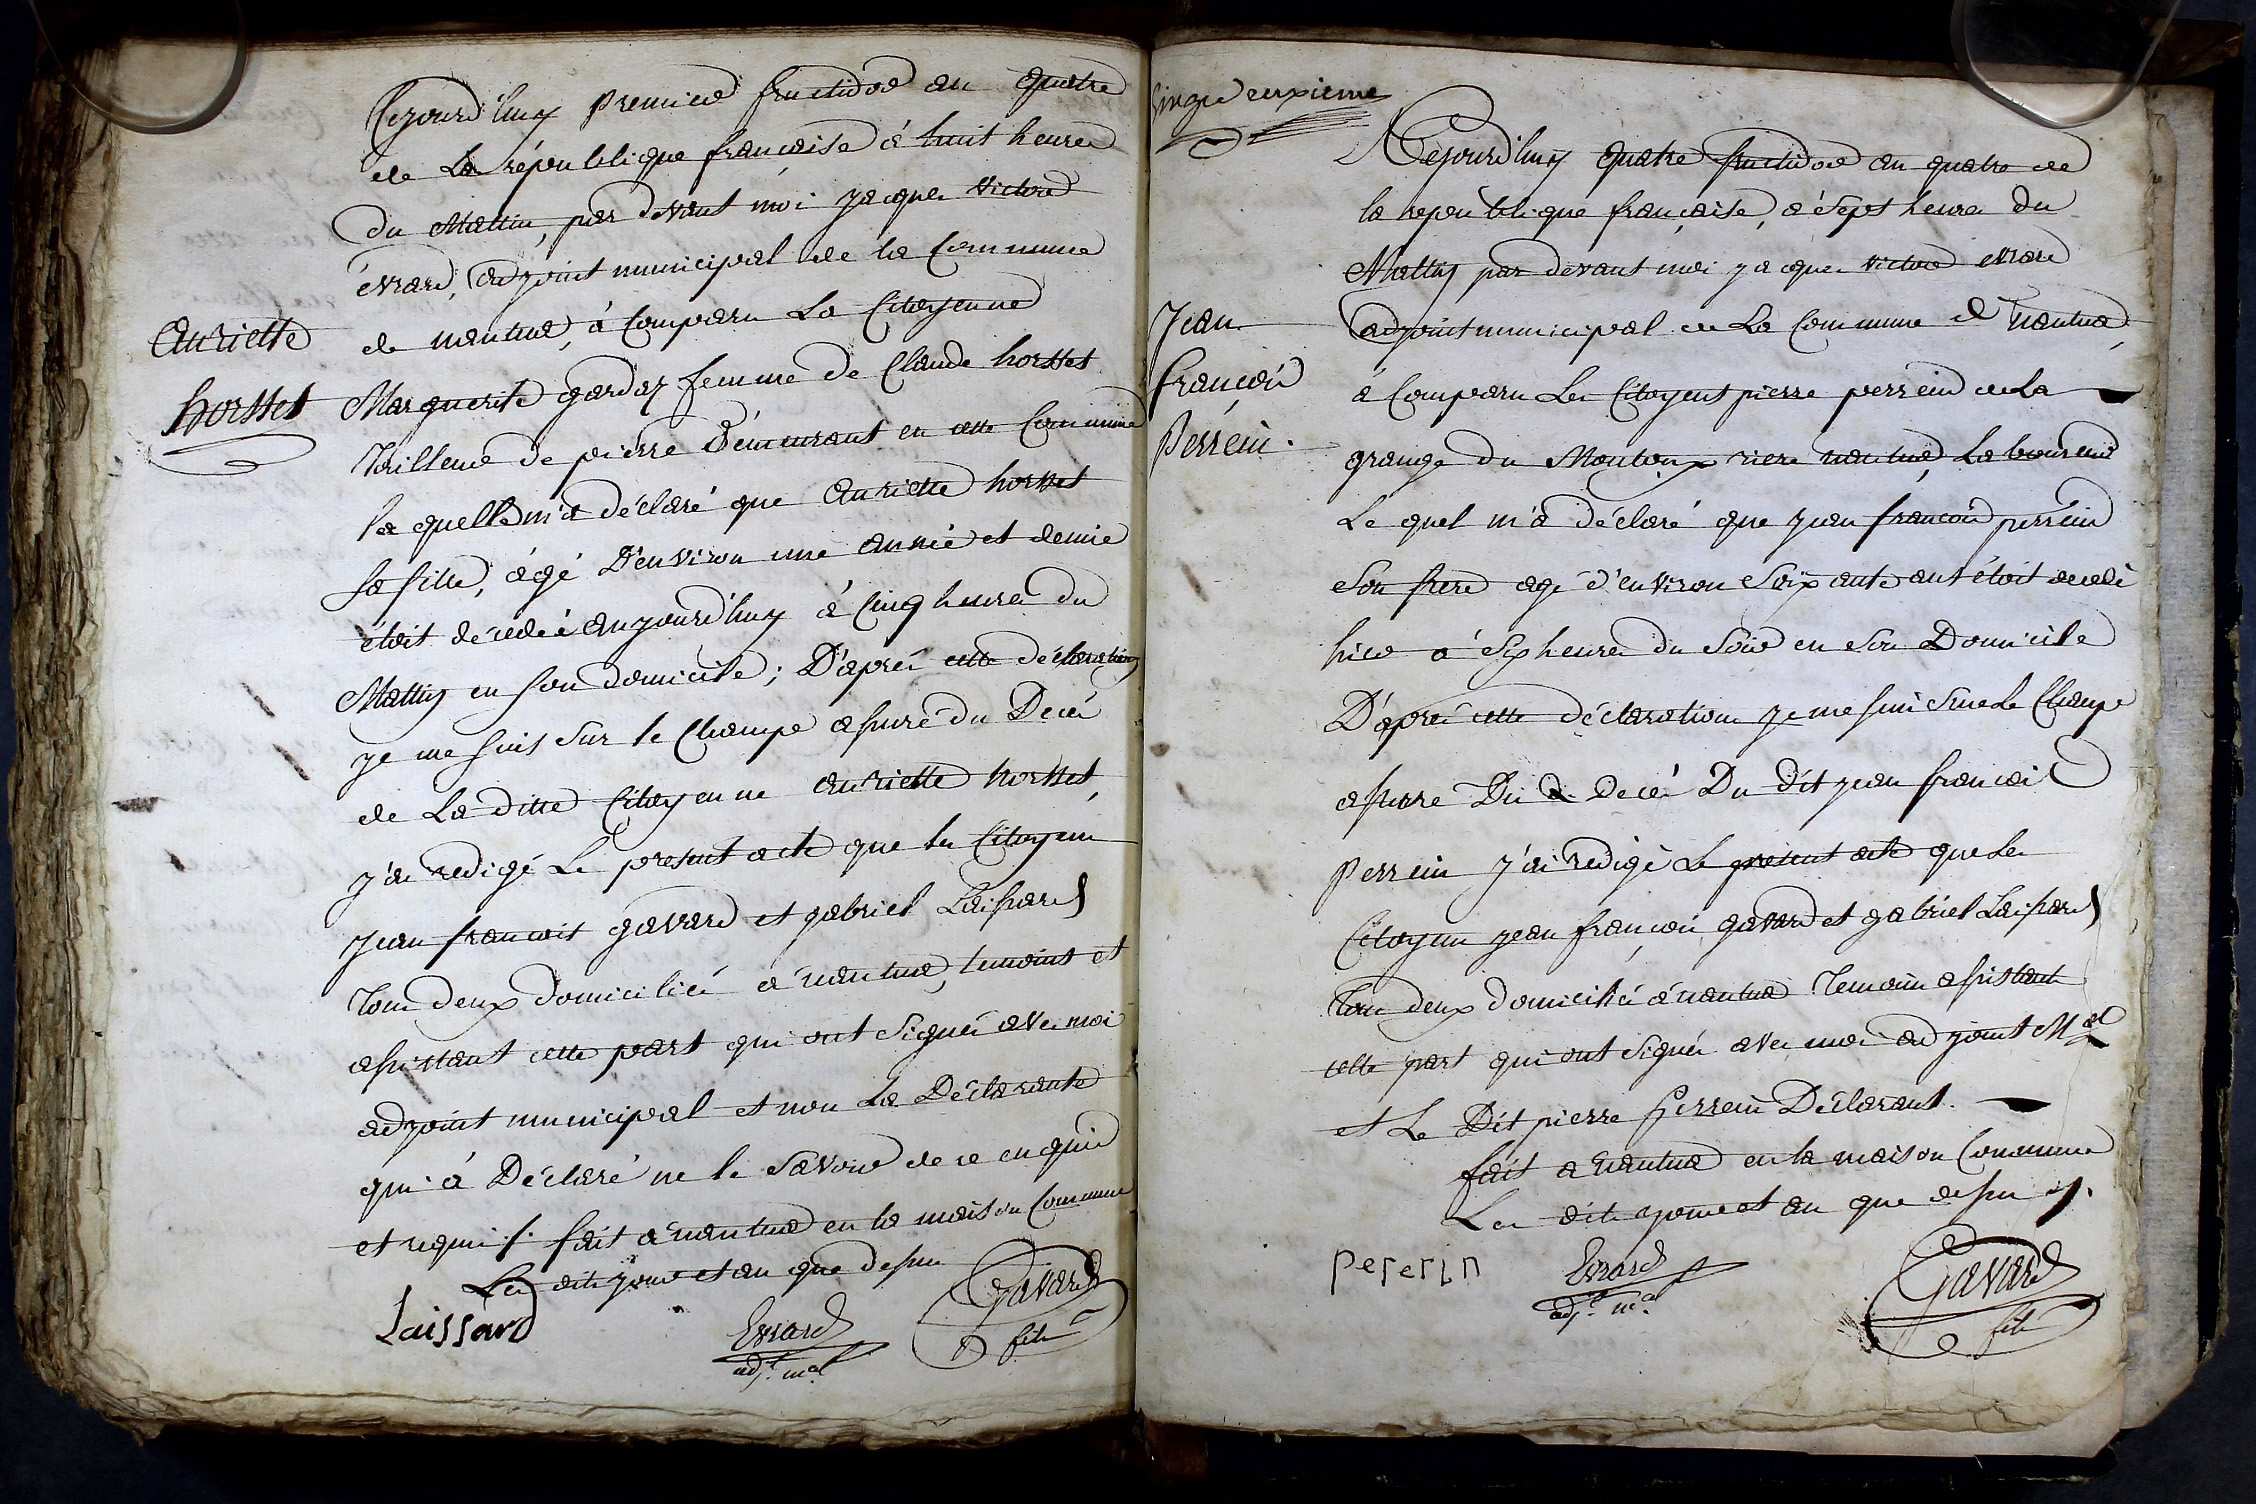 Cejourd'huy premier fructidor an quatre
de La république française à huit heures
du Mattin, par devant moi jacques victor
évrard, adjoint municipal de la Commune
de nantua, à Comparu La Citoyenne
Anriette
Horsset
Marguerite gardaz femme de Claude horsset
Tailleur de pierre Démeurant en cette Commune
la quelle m'a déclaré que anriette horsset
sa fille, agé D'environ une année et demie
étoit décedée aujourd'huy à Cinq heures du
Mattin en son domicile; D'après cette déclaration
je me suis sur le Champ assuré du Decès
de La ditte Citoyenne anriette horsset,
j'ai redigé Le present acte que les Citoyens
jean françois gavard et gabriel Laissard
Tous deux domiciliés à nantua, temoins et
assistant cette part qui ont signés avec moi
adjoint municipal et non La Déclarante
qui à Déclaré ne le savoir de ce enquis
et requis /. fait à nantua en la maison Commune
Les dits jour et an que dessus
Laissard
Evrard
adj.t m.al
Gavard
fils
cinq deuxieme
Cejourd'huy quatre fructidor an quatre de
la republique française, à sept heures du
Mattin par devant moi jacques victor evrard
adjoint municipal de La Commune de nantua,
Jean
françois
Perrein.
à Comparu Les Citoyens pierre perrein de La
grange du Moutoux riere nantua, Laboureur
Le quel m'a déclaré que jean françois perrein
son frere agé d'environ soixante ans étoit decedé
hier à six heures du soir en son Domicile
D'après cette déclaration je me suis sur Le Champ
assure Du Decès Du dit jean françois
perrein j'ai redigé Le present acte que Les
Citoyens jean françois gavard et gabriel Laissard
tous deux domiciliés à nantua Temoins assistant
cette part qui ont signés avec moi adjoint M.al
et Le Dit pierre perrein Déclarant.
fait à nantua en la maison Commune
Les dits jour et an que dessus /.
pererin
Evrard
adj.t m.al
Gavard
fils